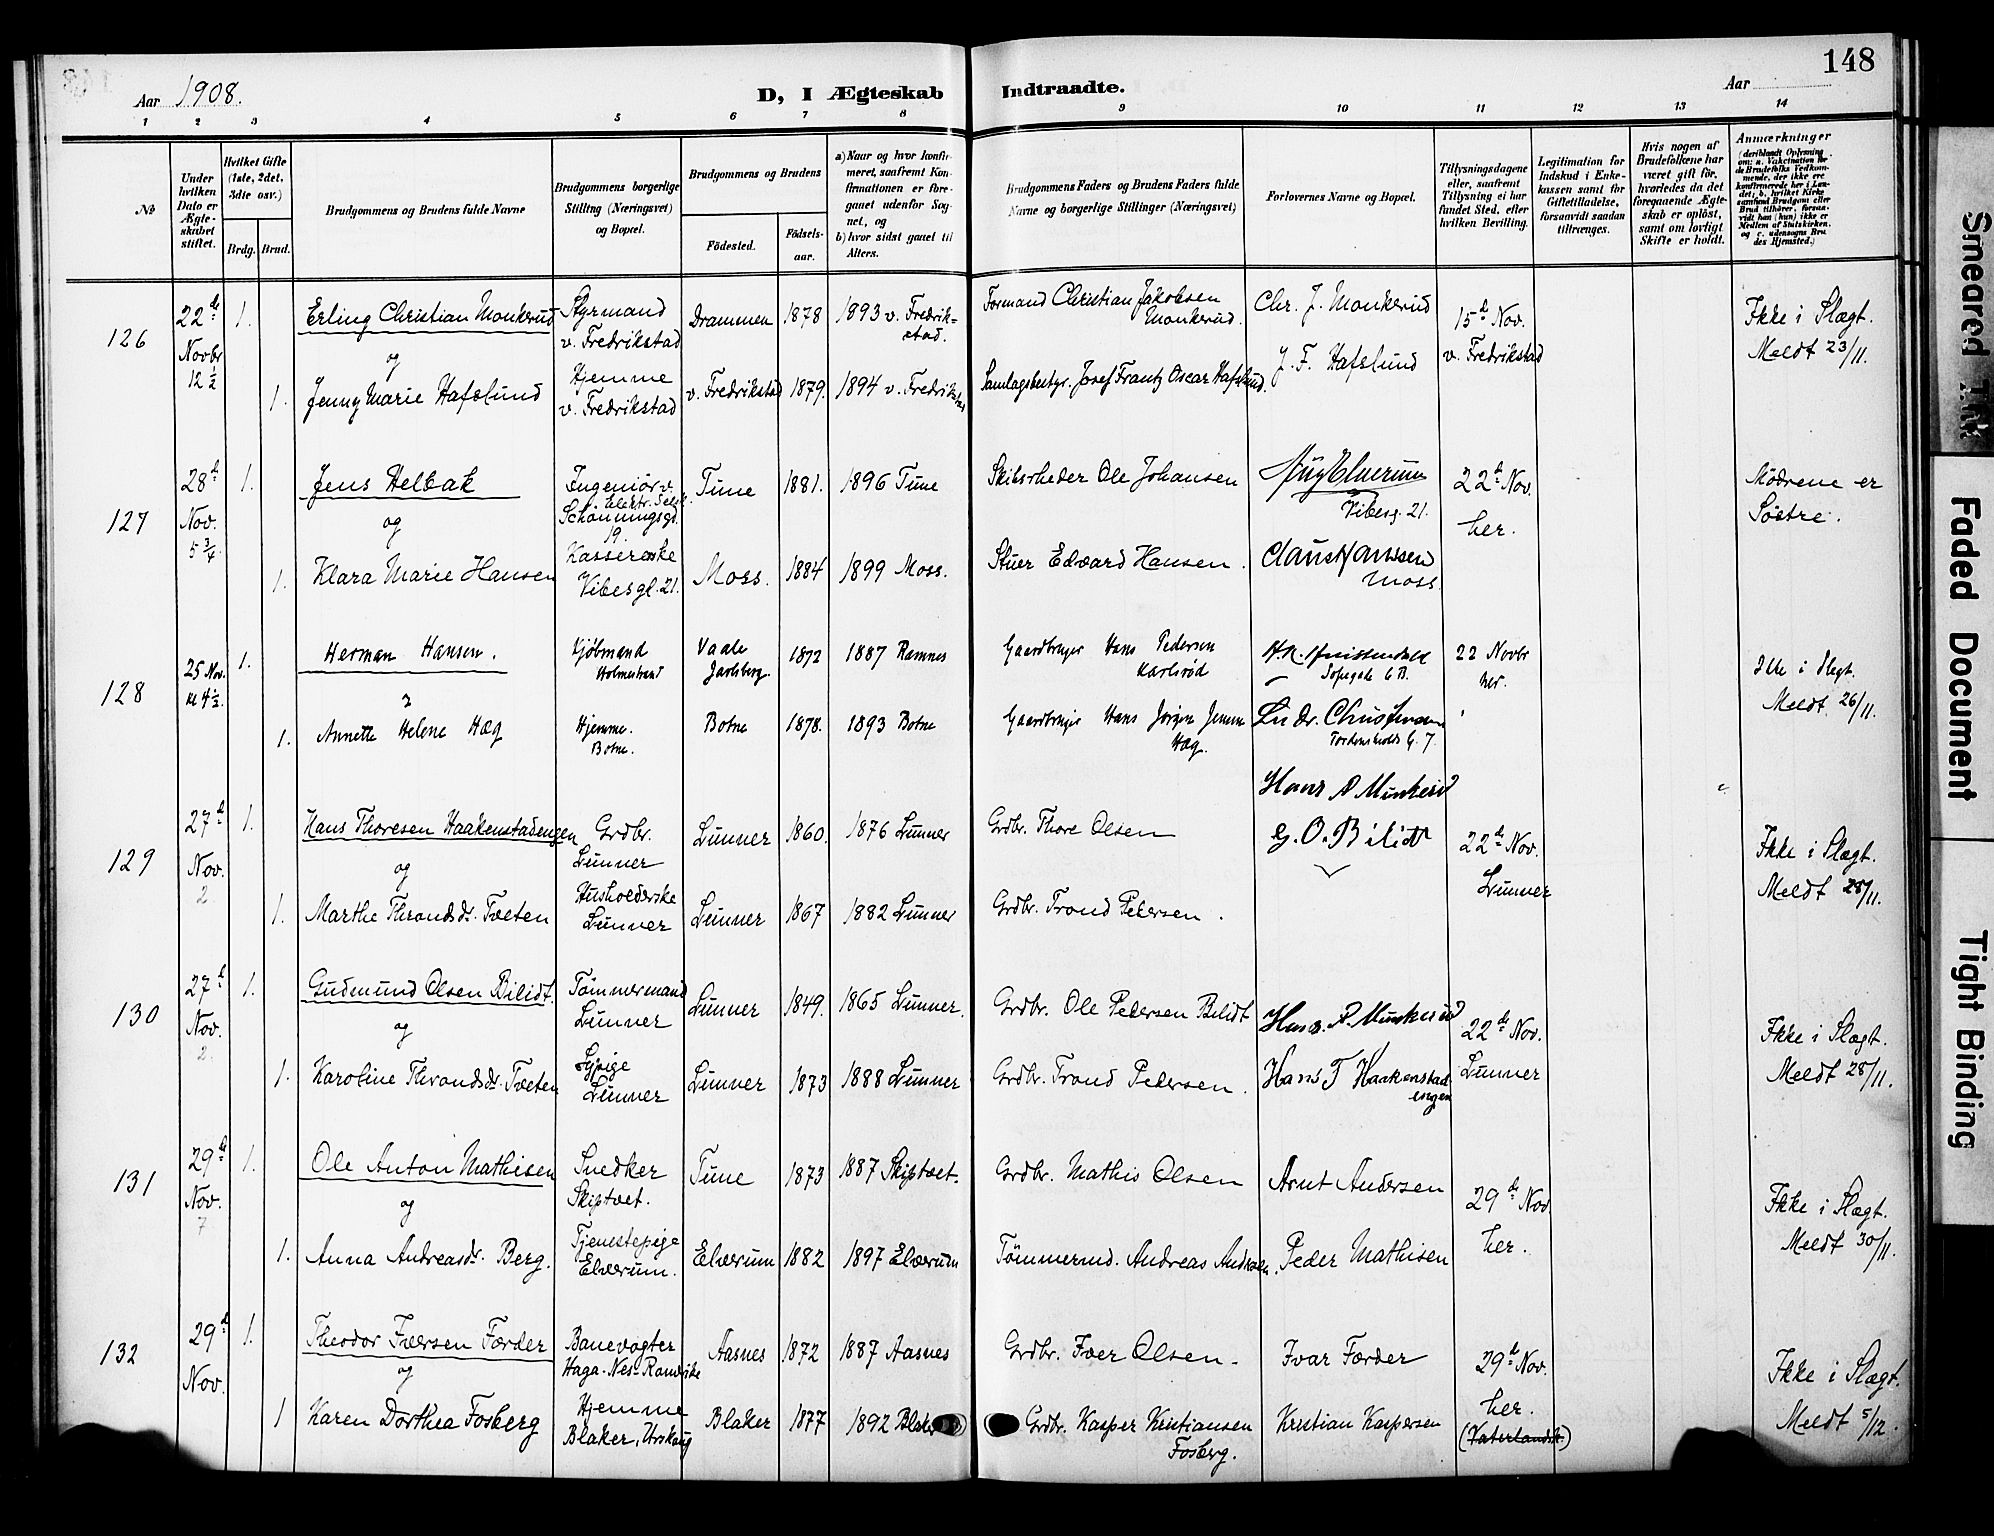 148
Aar 1908.
D, I Ægteskab Indtraadte.
Aar
1 2 3 4 5 6 7 8 9 10 11 12 13 14
№
Under hvilken Dato er Ægteskabet stiftet.
Hvilket Gifte (1ste, 2det, 3die osv.)
Brdg. Brud.
Brudgommens og Brudens fulde Navne
Brudgommens borgerlige Stilling (Næringsvei) og Bopæl.
Brudgommens og Brudens
Födested.
Födsels-aar.
a) Naar og hvor konfirmeret, saafremt Konfirmationen er foregaaet udenfor Sognet, og
b) hvor sidst gaaet til Alters.
Brudgommens Faders og Brudens Faders fulde Navne og borgerlige Stillinger (Næringsvei)
Forlovernes Navne og Bopæl.
Tillysningsdagene eller, saafremt Tillysning ei har fundet Sted, efter hvilken Bevilling.
Legitimation for Indskud i Enkekassen samt for Giftetilladelse, forsaavidt saadan tiltrænges.
Hvis nogen af Brudefolkene har været gift før, hvorledes da det foregaaende Ægteskab er oplöst, samt om lovligt Skifte er holdt.
Anmærkninger
126
22de Novbr 12½
1.
Erling Christian Monkerud
Styrmand
v. Fredrikstad
Drammen
1878
1893 v. Fredrik=
stad.
Formand Christian Jakobsen
Monkerud.
Chr. J. Monkerud
15de Nov.
v. Fredrikstad
Ikke i Slægt.
Meldt 23/11.
og
1.
Jenny Marie Hafslund
Hjemme
v. Fredrikstad
v. Fredrikstad
1879.
1894 v. Fredrikstad
Samlagsbestyr. Josef Frantz Oscar Hafslund.
J. F. Hafslund
127
28de Nov. 5¾
1.
Jens Helbak
Ingeniör v.
Elektr. Selsk.
Schönningsgd.
19.
Tune
1881.
1896 Tune
Skibsrheder Ole Johansen
Vibesg. 21.
22de Nov.
her.
Mödrene er
Söstre.
og
1.
Klara Marie Hansen
Kassererske
Vibesgt. 21.
Moss.
1884
1899 Moss.
Stuer Edvard Hansen.
Claus Hanssen
Moss.
128
25 Nov. kl 4½.
1.
Herman Hansen.
Kjöbmand
Holmestrand
Vaale
Jarlsberg.
1872
1887 Ramnes
Gaardbruger Hans Pedersen
Karlsröd
Sofiegade 6 B.
22 Novbr
her.
Ikke i Slegt.
Meldt. 26/11.
1.
Annette Helene Hæg
Hjemme.
Botne.
Botne
1878.
1893 Botne
Gaardbruger Hans Jörgen Jensen
Hæg.
Ludv. Christensen
Tordenskiolds G. 7.
129
27de Nov. 2
1.
Hans Thoresen Haakenstadengen
Grdbr.
Lunner
Lunner
1860.
1876 Lunner
Grdbr. Thore Olsen
Hans A Munkerud
G. O. Bilidt
22de Nov.
Lunner
Ikke i Slægt.
Meldt 28/11.
og
1.
Marthe Throndsdr. Tveten
Husholderske
Lunner
Lunner
1867
1882 Lunner
Grdbr. Trond Pedersen.
130
27de Nov. 2.
1.
Gudmund Olsen Bilidt.
Tömmermand
Lunner
Lunner
1849.
1865 Lunner.
Grdbr. Ole Pedersen Bilidt
Hans. A. Munkerud
22de Nov.
Lunner
Ikke i Slægt.
Meldt 28/11.
og
1.
Karoline Throndsdr. Tveten
Sypige
Lunner
Lunner
1873
1888 Lunner
Grdbr. Trond Pedersen.
Hans T Haakenstad
engen
131
29de Nov. 7
1.
Ole Anton Mathisen
Snedker
Skiptvet.
Tune
1873
1887 Skiptvet.
Grdbr. Mathis Olsen
Arnt Andersen
29de Nov.
her.
Ikke i Slægt.
Meldt 30/11.
og
1.
Anna Andreasdr. Berg.
Tjenestepige
Elverum.
Elverum
1882
1897 Elverum
Tömmermd. Andreas Andersen.
Peder Mathisen
132
29de Nov.
1.
Theodor Iversen Forder
Banevogter
Haga-Nes-Romerike
Aasnes
1872
1887 Aasnes
Grdbr. Iver Olsen.
Ivar Forder
29de Nov.
her.
(Vaterlands k.)
Ikke i Slægt.
Meldt 5/12.
og
1
Karen Dorthea Fosberg
Hjemme
Blaker, Urskoug
Blaker
1877
1892 Blaker
Grdbr. Kasper Kristiansen
Fosberg.
Kristian Kaspersen
Smeared Ink
Faded Document
Tight Binding